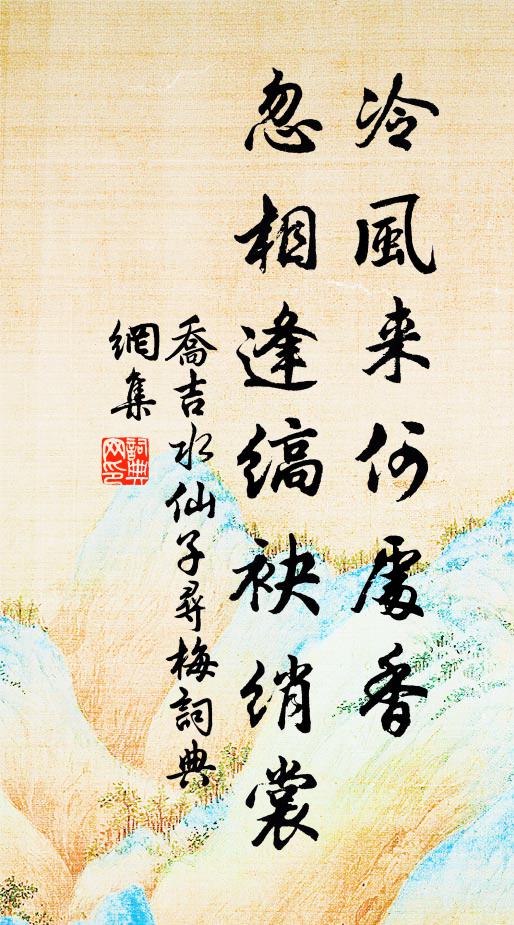 冷風来何處香
忽相逢縞袂綃裳
喬吉水仙子尋梅詞典
網集
詞典
网印